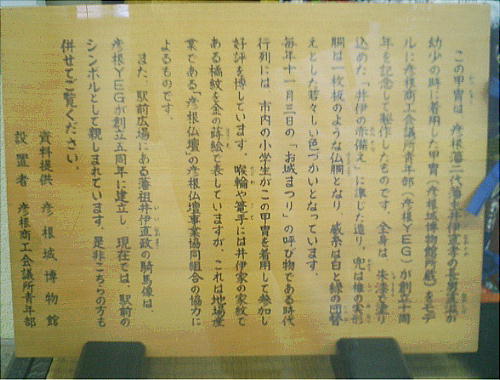 この甲冑は、彦根藩二代藩主井伊直孝の長男直滋が
幼少の時に着用した甲冑(彦根城博物館所蔵)をモデ
ルに彦根商工会議所青年部(彦根YEG)が創立十周
年を記念して製作したものです。全身は、朱漆で塗り
込めた「井伊の赤備え」に準じた造り。兜は椎の実形
胴は一枚板のような仏胴となり、威糸は白と緑の段替
えとした若々しい色づかいとなっています。
毎年十一月三日の「お城まつり」の呼び物である時代
行列には、市内の小学生がこの甲冑を着用して参加し
好評を博しています。喉輪や篭手には井伊家の家紋で
ある橘紋を金の蒔絵で表していますが、これは地場産
業である「彦根仏壇」の彦根仏壇事業協同組合の協力に
よるものです。
また、駅前広場にある藩祖井伊直政の騎馬像は
彦根YEGが創立五周年に建立し、現在では、駅前の
シンボルとして親しまれています。是非こちらの方も
併せてご覧ください。
資料提供 彦根城博物館
設置者 彦根商工会議所青年部